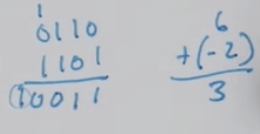 1
0110
1101
10011
6
+(-2)
3